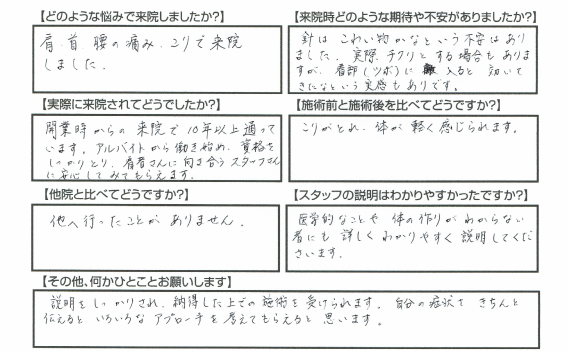 【どのような悩みで来院しましたか?】
肩、首、腰の痛み、こりで来院
しました。
【来院時どのような期待や不安がありましたか?】
針は、こわい物かなという不安はあり
ました。実際、チクリとする場合もありま
すが、患部(ツボ)に入ると効いて
きたなという実感もありです。
【実際に来院されてどうでしたか?】
開業時からの来院で10年以上通って
います。アルバイトから働き始め、資格を
しっかりとり、患者さんに向き合うスタッフさん
に安心してみてもらえます。
【施術前と施術後を比べてどうですか?】
こりがとれ、体が軽く感じられます。
【他院と比べてどうですか?】
他へ行ったことがありません。
【スタッフの説明はわかりやすかったですか?】
医学的なことや体の作りがわからない
者にも詳しくわかりやすく説明してくだ
さいます。
【その他、何かひとことお願いします】
説明をしっかりされ、納得した上での施術を受けられます。自分の症状をきちんと
伝えるといろいろなアプローチを考えてもらえると思います。